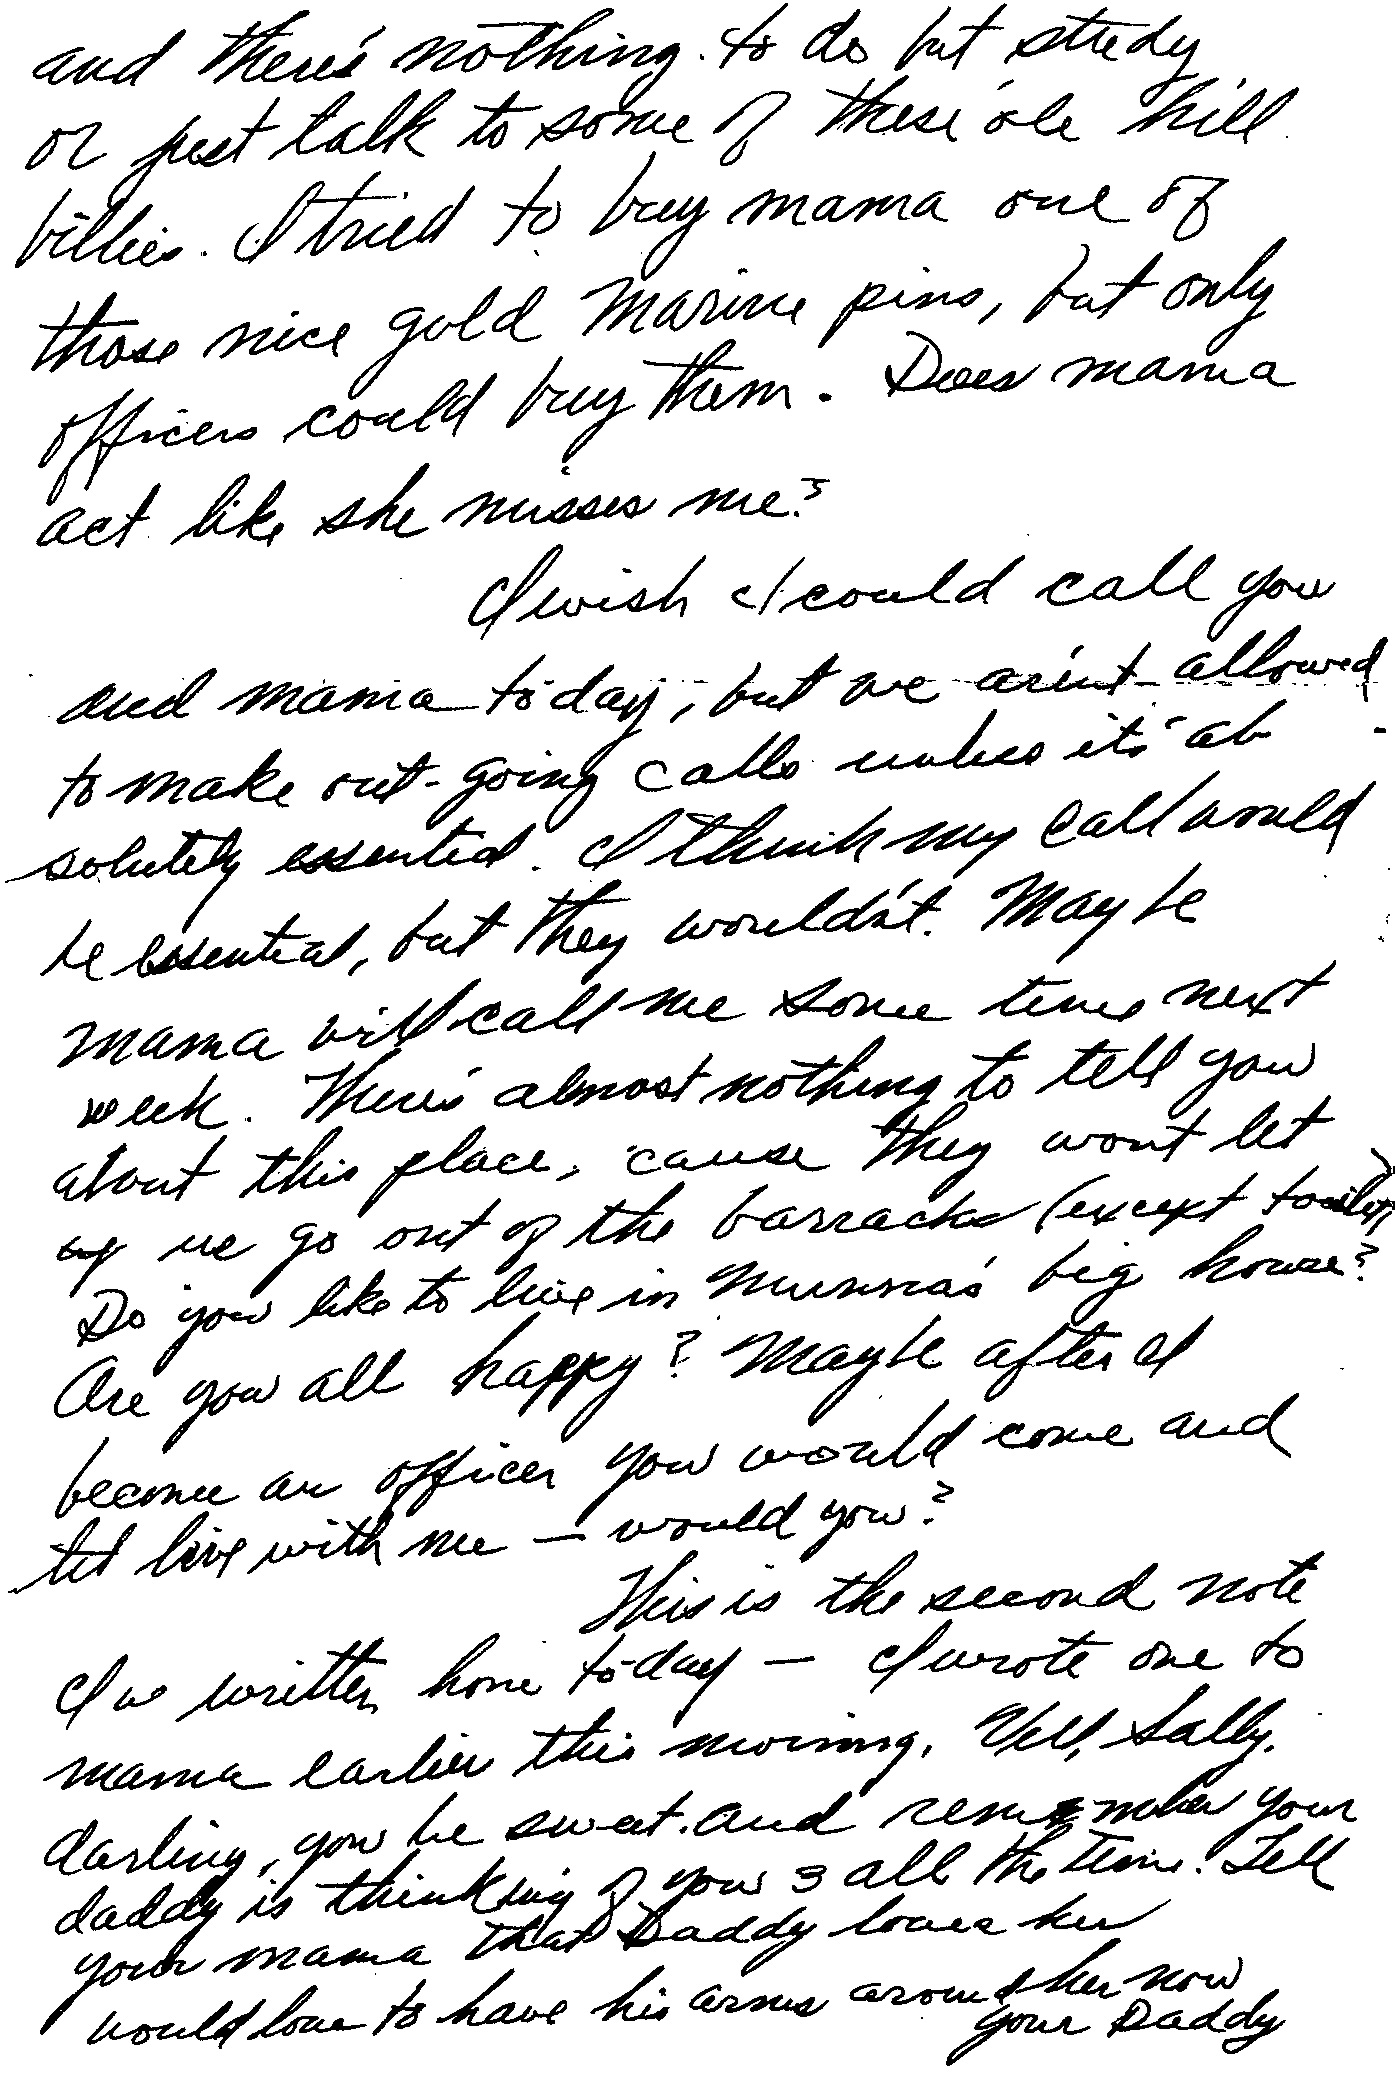 and there's nothing to do but study
or just talk to some of these ole hill
billies. I tried to buy mama one of
those nice gold Marine pins, but only
officers could buy them. Does mama
act like she misses me?
I wish I could call you
and mama today, but we aren't allowed
to make out-going calls unless it's ab
solutely essential. I think my call would
be essential, but they wouldn't. Maybe
mama will call me some time next
week. There's almost nothing to tell you
about this place, 'cause they wont let
us go out of the barracks (except to
Do you like to live in Munna's big house?
Are you all happy? Maybe after I
become an officer you would come and
live with me — would you?
This is the second note
I've written home today — I wrote one to
mama earlier this morning. Well, Sally,
darling, you be sweet. and remember your
daddy is thinking of you 3 all the time. Tell
your mama that Daddy loves her
would love to have his arms around her now
your Daddy